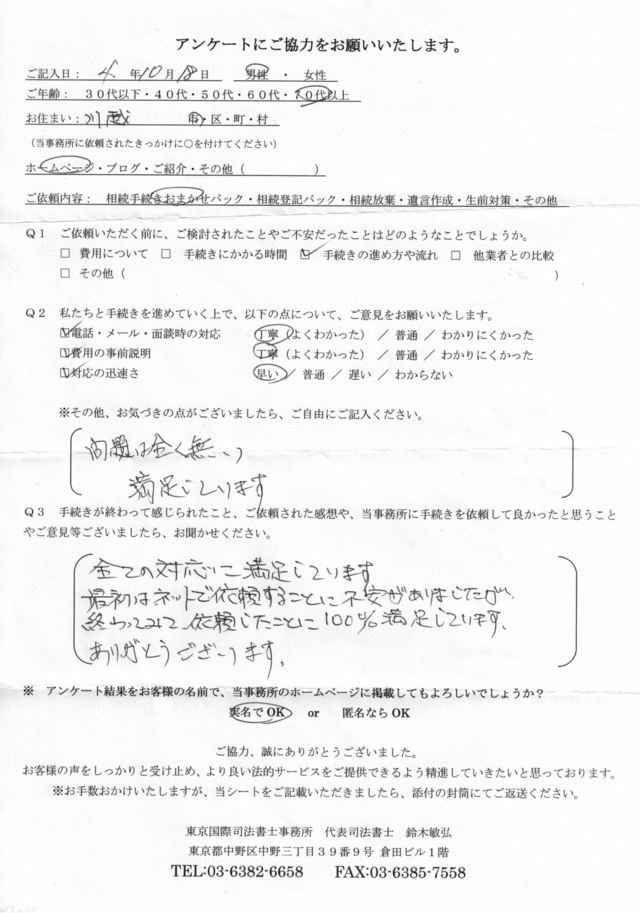 アンケートにご協力をお願いいたします。
ご記入日： 4 年 10 月 18 日 男性 ・ 女性
ご年齢： 30代以下・40代・50代・60代・70代以上
お住まい： 川越 市・区・町・村
（当事務所に依頼されたきっかけに○を付けてください）
ホームページ・ブログ・ご紹介・その他（ ）
ご依頼内容： 相続手続きおまかせパック・相続登記パック・相続放棄・遺言作成・生前対策・その他
Q1 ご依頼いただく前に、ご検討されたことやご不安だったことはどのようなことでしょうか。
□ 費用について □ 手続きにかかる時間 ☑ 手続きの進め方や流れ □ 他業者との比較
□ その他（ ）
Q2 私たちと手続きを進めていく上で、以下の点について、ご意見をお願いいたします。
☑電話・メール・面談時の対応 丁寧（よくわかった） ／ 普通 ／ わかりにくかった
☑費用の事前説明 丁寧（よくわかった） ／ 普通 ／ わかりにくかった
☑対応の迅速さ 早い ／ 普通 ／ 遅い ／ わからない
※その他、お気づきの点がございましたら、ご自由にご記入ください。
問題は全く無い
満足しています
Q3 手続きが終わって感じられたこと、ご依頼された感想や、当事務所に手続きを依頼して良かったと思うこと
やご意見等ございましたら、お聞かせください。
全ての対応に満足しています
最初はネットで依頼することに不安がありましたが、
終わってみて依頼したことに100%満足しています、
ありがとうございます。
※ アンケート結果をお客様の名前で、当事務所のホームページに掲載してもよろしいでしょうか？
実名でOK or 匿名ならOK
ご協力、誠にありがとうございました。
お客様の声をしっかりと受け止め、より良い法的サービスをご提供できるよう精進していきたいと思っております。
※お手数おかけいたしますが、当シートをご記載いただきましたら、添付の封筒にてご返送ください。
東京国際司法書士事務所 代表司法書士 鈴木敏弘
東京都中野区中野三丁目39番9号 倉田ビル1階
TEL:03-6382-6658 FAX:03-6385-7558